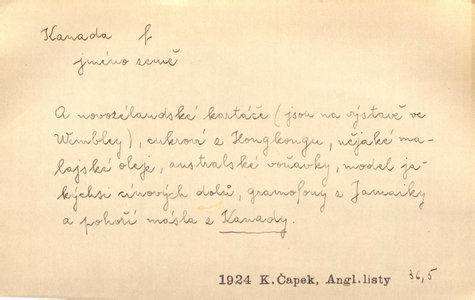 Kanada f
jméno země
A novozélandské kartáče (jsou na výstavě ve
Wembley), cukroví z Hongkongu, nějaké ma-
lajské oleje, australské voňavky, model ja-
kýchsi cínových dolů, gramofony z Jamaiky
a pohoří másla z Kanady.
1924 K.Čapek, Angl.listy 36,5